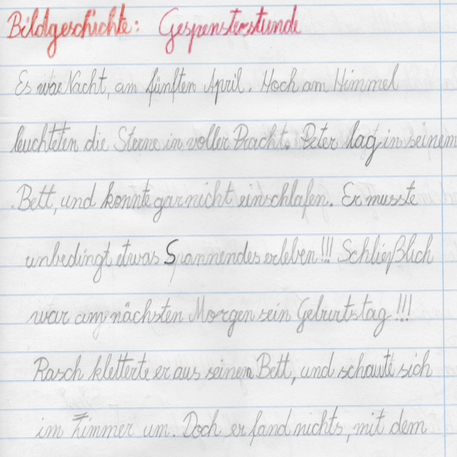 Bildgeschichte: Gespensterstunde
Es war Nacht, am fünften April. Hoch am Himmel
leuchteten die Sterne in voller Pracht. Peter lag in seinem
Bett, und konnte gar nicht einschlafen. Er musste
unbedingt etwas Spannendes erleben!!! Schließlich
war am nächsten Morgen sein Geburtstag!!!
Rasch kletterte er aus seinem Bett, und schaute sich
im Zimmer um. Doch er fand nichts, mit dem